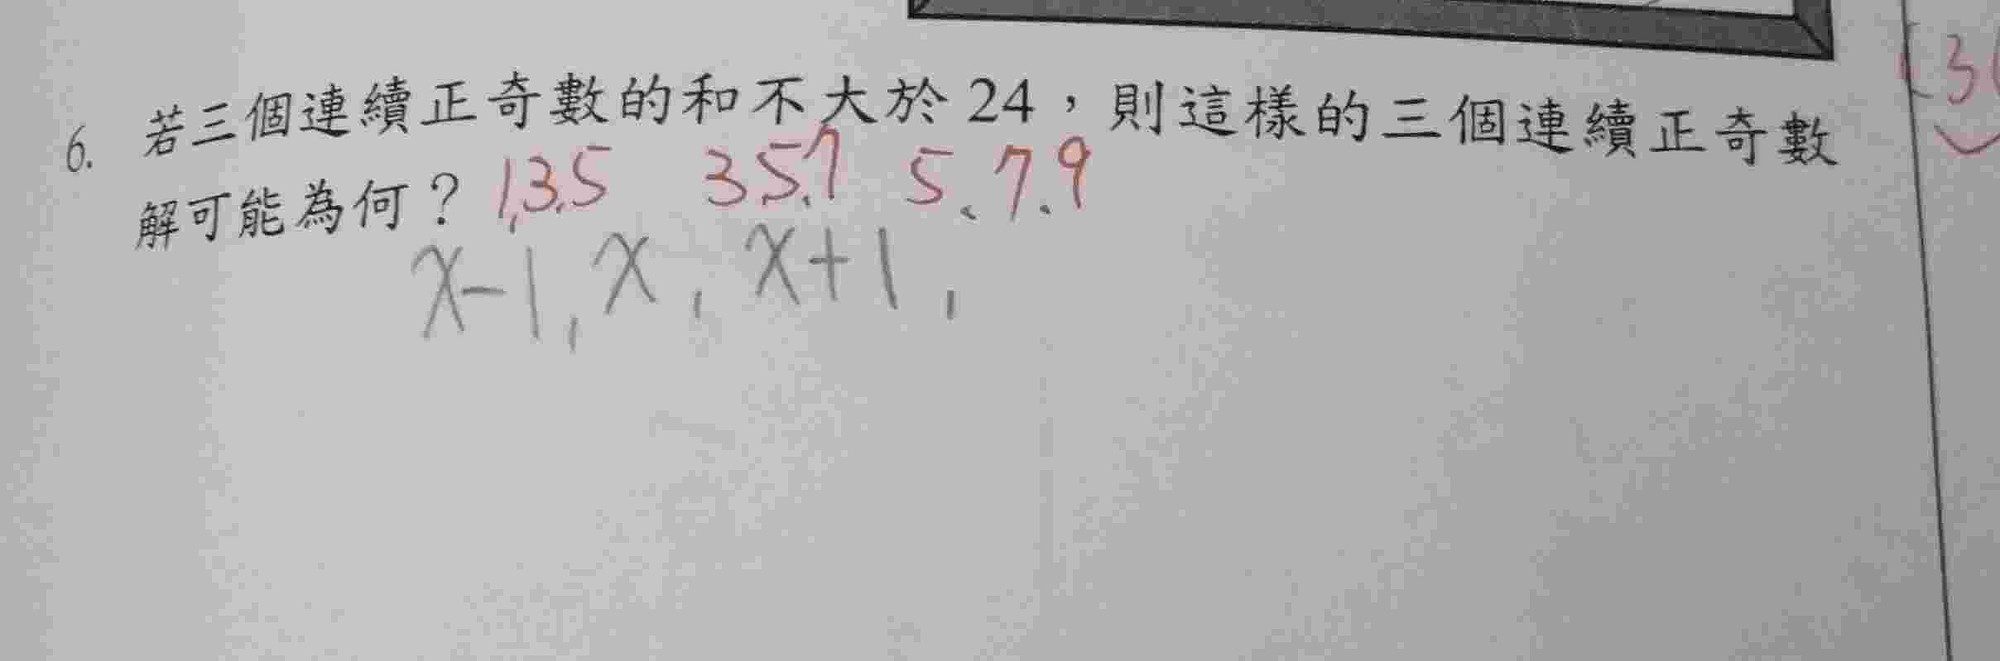 6. 若三個連續正奇數的和不大於 24，則這樣的三個連續正奇數
解可能為何？ 1,3,5 3,5,7 5、7、9
x-1, x, x+1,